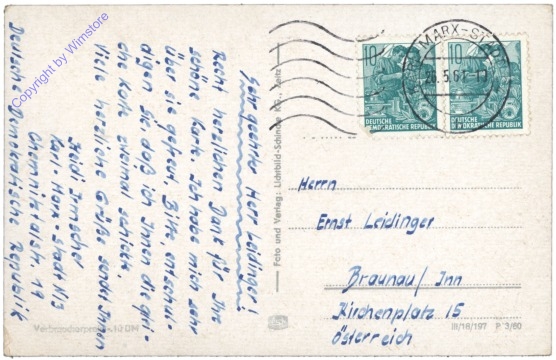 Sehr geehrter Herr Leidinger!
Recht herzlichen Dank für Ihre
schöne Karte. Ich habe mich sehr
über sie gefreut. Bitte, entschul-
digen Sie daß ich Ihnen die glei-
che Karte zweimal schrieb.
Viele herzliche Grüße sendet Ihnen
Heidi
Karl-Marx-Stadt N 3
Chemnitztalstr. 19
Deutsche Demokratische Republik
Foto und Verlag: Lichtbild-Schincke KG., Zeitz
MARX-ST
5.61-17
10
DEUTSCHE
DEMOKRATISCHE REPUBLIK
10
DEUTSCHE
DEMOKRATISCHE REPUBLIK
Herrn
Ernst Leidinger
Braunau/Inn
Kirchenplatz 15
Österreich
III/18/197 P 3/60
Copyright by Wimstore